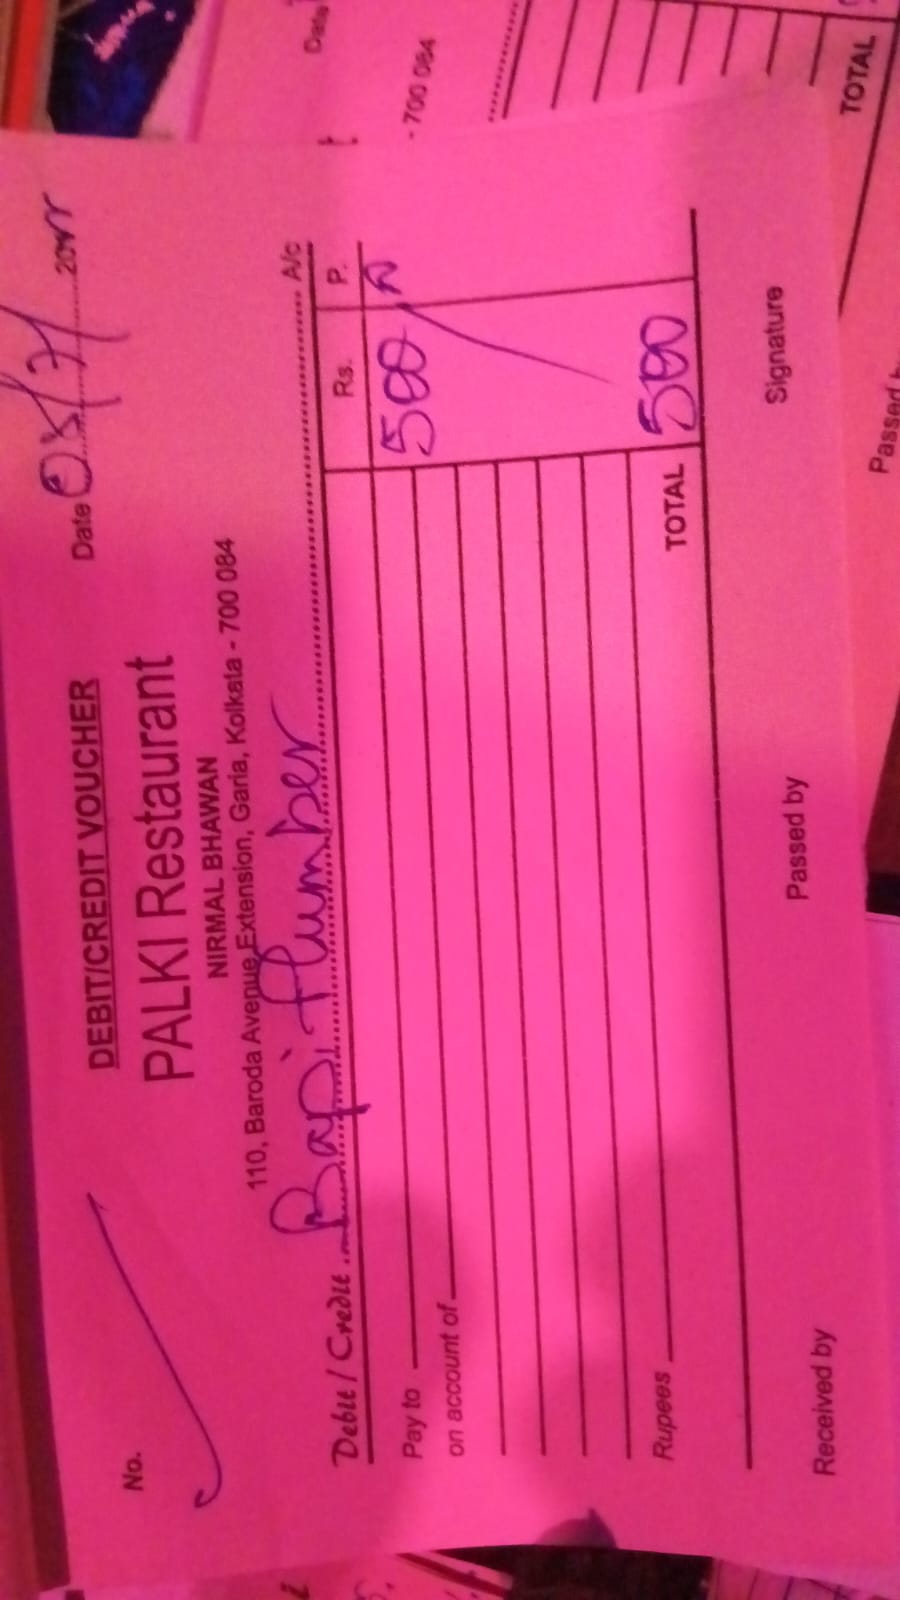 DEBIT/CREDIT VOUCHER
No.
Date 05/7/
PALKI Restaurant
NIRMAL BHAWAN
110, Baroda Avenue Extension, Garia, Kolkata - 700 084
Debit / Credit Bapi Plumber A/c
Rs. P.
Pay to 500
on account of
Rupees
TOTAL 500
Received by Passed by Signature
Date
- 700 084
TOTAL